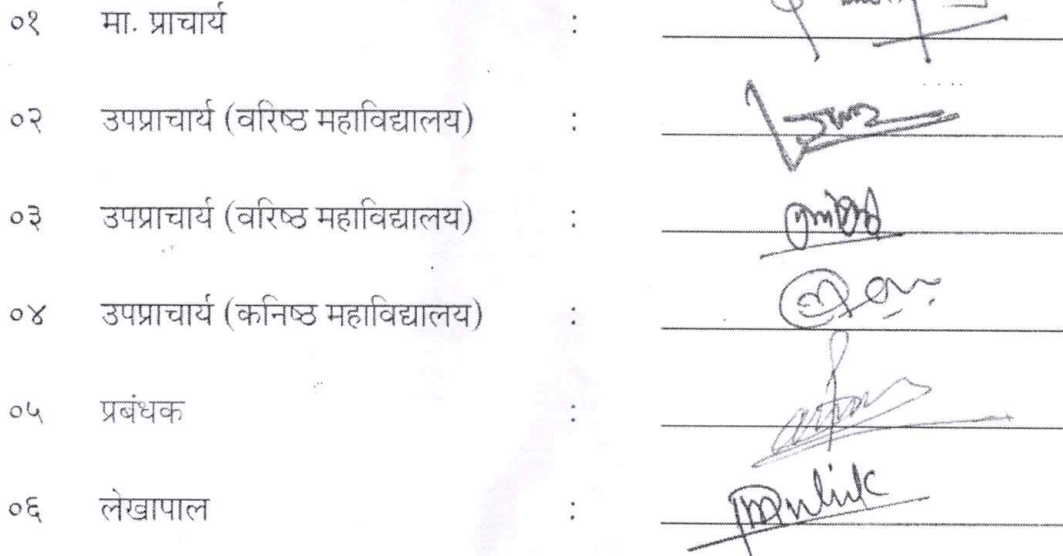 ०१ मा. प्राचार्य :
०२ उपप्राचार्य (वरिष्ठ महाविद्यालय) :
०३ उपप्राचार्य (वरिष्ठ महाविद्यालय) :
०४ उपप्राचार्य (कनिष्ठ महाविद्यालय) :
०५ प्रबंधक :
०६ लेखापाल :